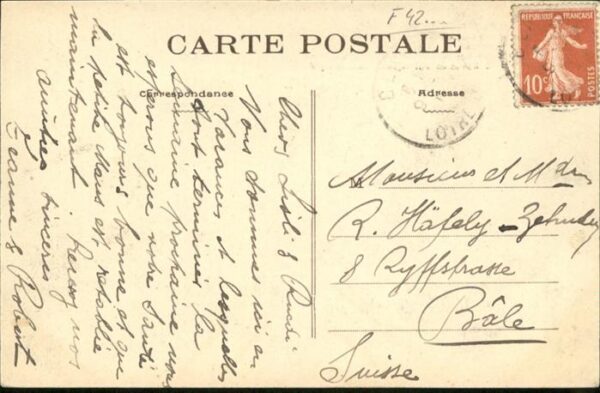 F 42...
CARTE POSTALE
Correspondance
Adresse
REPUBLIQUE FRANÇAISE
10c
POSTES
LOIRE
Chers Lisli & Ruedi
Vous sommes ici en
vacances et lesquelles
sont terminées la
semaine prochaine nous
espérons que notre santé
est toujours bonne et que
la petite est rétablie
maintenant. Recevez nos
amitiés sincères
Jeanne & Robert
Monsieur et Mdme
R. Häfely-Zehnder
8 Ryffstrasse
Bâle
Suisse